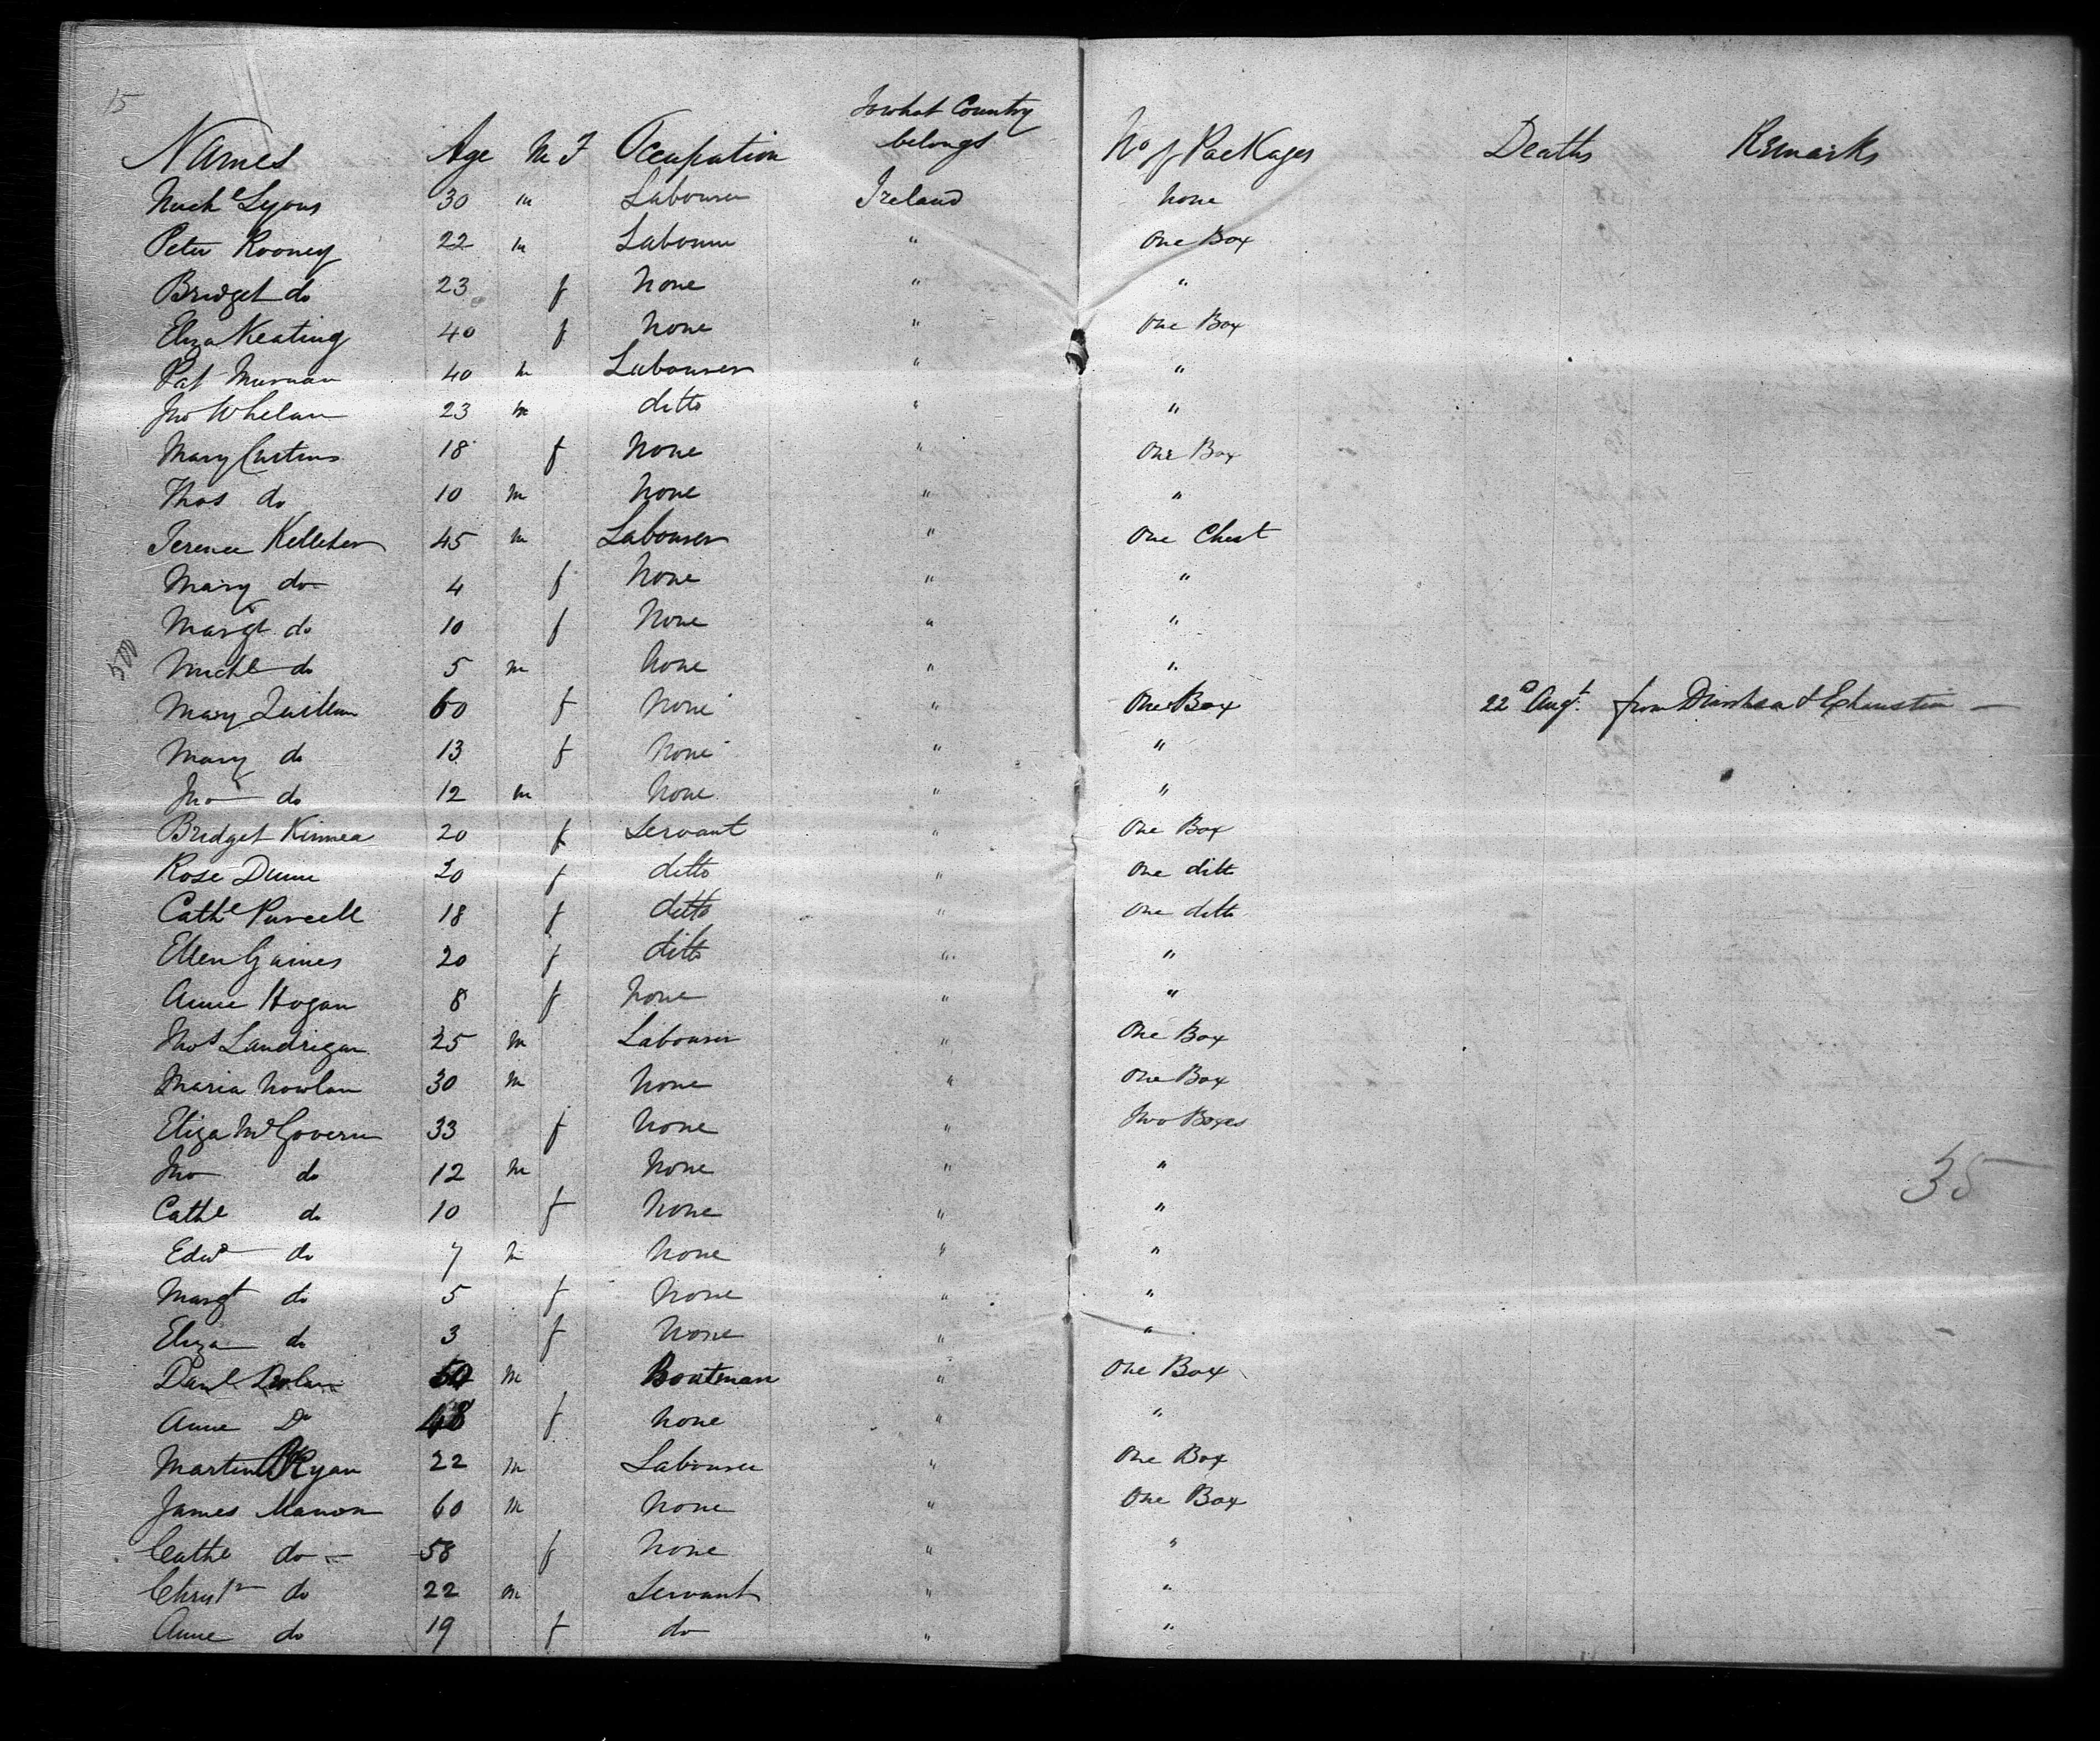 15
To what Country
Names Age M F Occupation belongs No of Packages Deaths Remarks
Michl Lyons 30 m Labourer Ireland None
Peter Rooney 22 m Labourer " One Box
Bridget do 23 f None " "
Eliza Keating 40 f None " One Box
Pat Murnan 40 m Labourer " "
Jno Whelan 23 m ditto " "
Mary Curtins 18 f None " One Box
Thos do 10 m None " "
Terence Kelleher 45 m Labourer " One Chest
Mary do 4 f None " "
Margt do 10 f None " "
500 Michl do 5 m None " "
Mary Quillan 60 f None " One Box 22d Augt. from Diarrhea & Exhaustion —
Mary do 13 f None " "
Jno do 12 m None " "
Bridget Kinnea 20 f Servant " One Box
Rose Dunn 20 f ditto " One ditto
Cathe Purcell 18 f ditto " One ditto
Ellen Gaines 20 f ditto " "
Anne Hogan 8 f None " "
Thos Landrigan 25 m Labourer " One Box
Maria Nowlan 30 m None " One Box
Eliza McGovern 33 f None " Two Boxes
Jno do 12 m None " "
35
Cathe do 10 f None " "
Edwd do 7 m None " "
Margt do 5 f None " "
Eliza do 3 f None " "
Danl 50 m Boatman " One Box
Anne Do 48 f None " "
Martin Ryan 22 m Labourer " One Box
James Manon 60 m None " One Box
Cathe do 58 f None " "
Christr do 22 m Servant " "
Anne do 19 f do " "